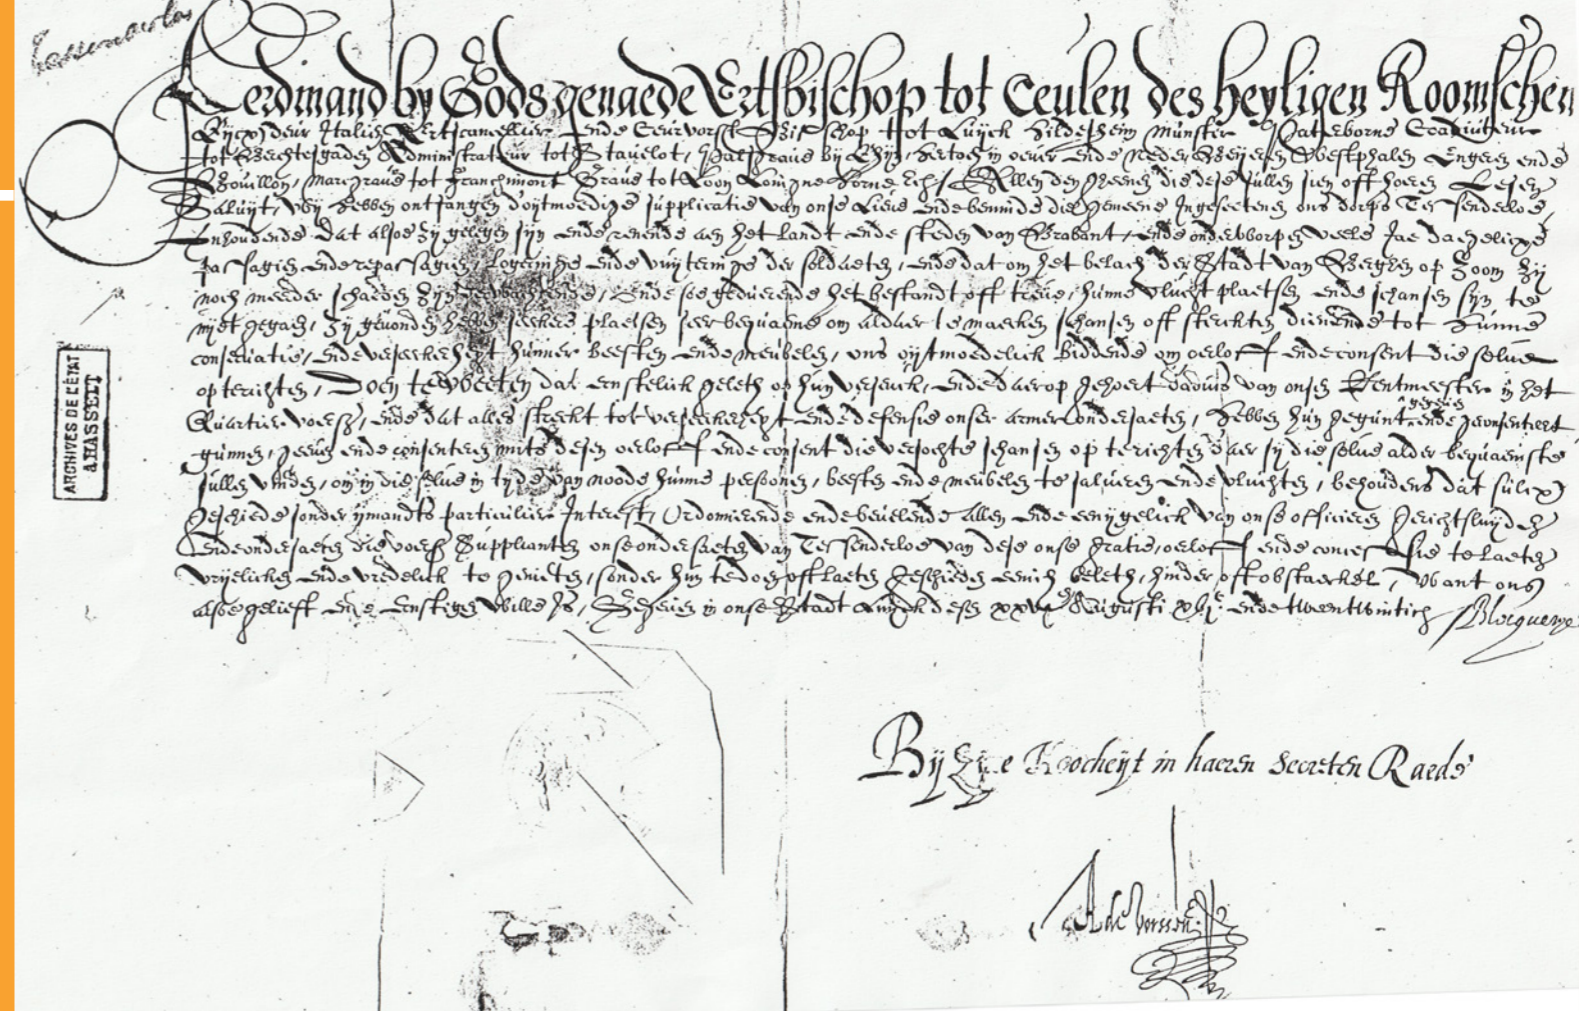 Tessenderloo
Ferdinand by Gods genaede Ertsbischop tot Ceulen des heyligen Roomschen
Rijcx deur Italien Ertscancellier ende Ceurvorst Bisschop tot Luyck Hildesheim Munster Paterborne Coadiuteur
tot Berchtesgaden Administrateur tot Stavelot, Palsgrave by Rhyn, hertoch in over ende neder Beijeren Westphalen Engeren ende
Bouillon, Marcgrave tot Franchimont Grave tot Loon Loingne Horne etc. Allen den gheenen die dese sullen sien oft hoeren Lesen
Saluijt, Wy hebben ontfangen oijtmoedige supplicatie van onse Lieve ende beminde die gemeene Ingesetenen ons dorps Tessenderloe
Inhoudende dat alsoe zy gelegen syn ende renende aen het landt ende steden van Brabant, ende onderworpen veele jae dagelixe
passagien ende repassagien, Logeringe ende uuyteringe der soldaeten, ende dat om het belach der Stadt van Berghen op Zoom zy
noch meerder schaeden zyn verwachtende, Ende soe geduerende het bestandt oft treve, hunne vlucht plaetsen ende schansen syn te
nyet gegaen, Zy gevonden hebben seekere plaetsen seer bequaeme om aldaer te maecken schansen oft sterckten dienende tot hunne
conservatie, ende verseekerheyt hunner beesten ende meubelen, ons oijtmoedelick biddende om oerloff ende consent die selve
op terichten, Doen te weeten dat ernstelick geleth op hun versuck, ende daerop gehoert d'advis van onsen Rentmeester in het
Quartier voersz, ende dat alles streckt tot verseeckerheyt ende defensie onser armer ondersaeten, hebben hun gegunt gegeven ende geconsenteert
gunnen, geeven ende consenteren mits desen oerloff ende consent die versochte schansen op terichten daer sy die selve alder bequaemste
sullen vinden, om in die selve in tyde van noode hunne persoonen, beesten ende meubelen te salveren ende vluchten, behoudens dat sulcx
geschiede sonder ymandts particulier Interest, Ordonnerende ende bevelende allen ende eenygelick van onse officieren gerichtsluyden
ende ondersaeten die voersz Supplianten onse ondersaeten van Tessenderloe van dese onse gratie, oerloff ende concessie te Laeten
vryelicken ende vredelick te genieten, sonder hun te doen oft Laeten geschieden eenich beleth, hinder oft obstaeckel, Want ons
alsoe gelieft ende ernstigen Wille Is, Gegeven in onse Stadt Luyck desen Augusti ende tweentwintich
Bij Zyne Hoocheijt in haeren Secreten Raede
ARCHIVES DE L'ÉTAT
à HASSELT